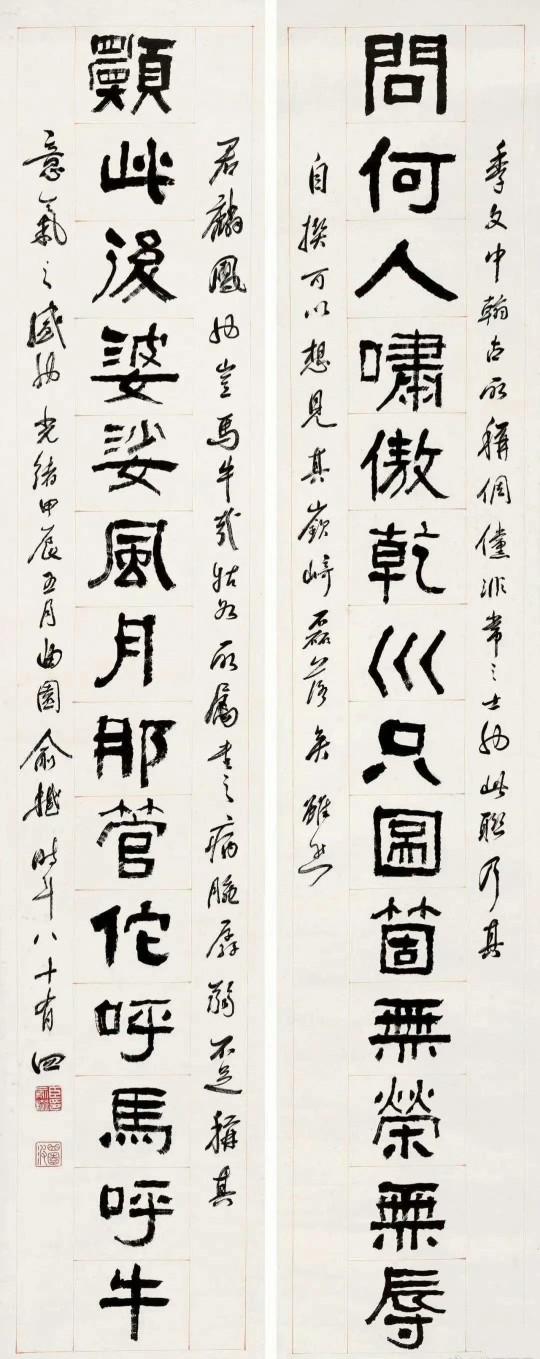 季文中翰古所稱倜儻非常之士也此聯乃其
問何人嘯傲乾巛只圖箇無榮無辱
自撰可以想見其嶔崎磊落矣雖然
君麟鳳也豈馬牛哉姑如所屬書之病腕孱弱不足稱其
願此後婆娑風月那管佗呼馬呼牛
意氣之盛也光緒甲辰五月曲園俞樾時年八十有四